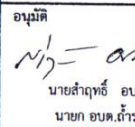 อนุมัติ
นายสำฤทธิ์ อบ
นายก อบต.ถ้ำร